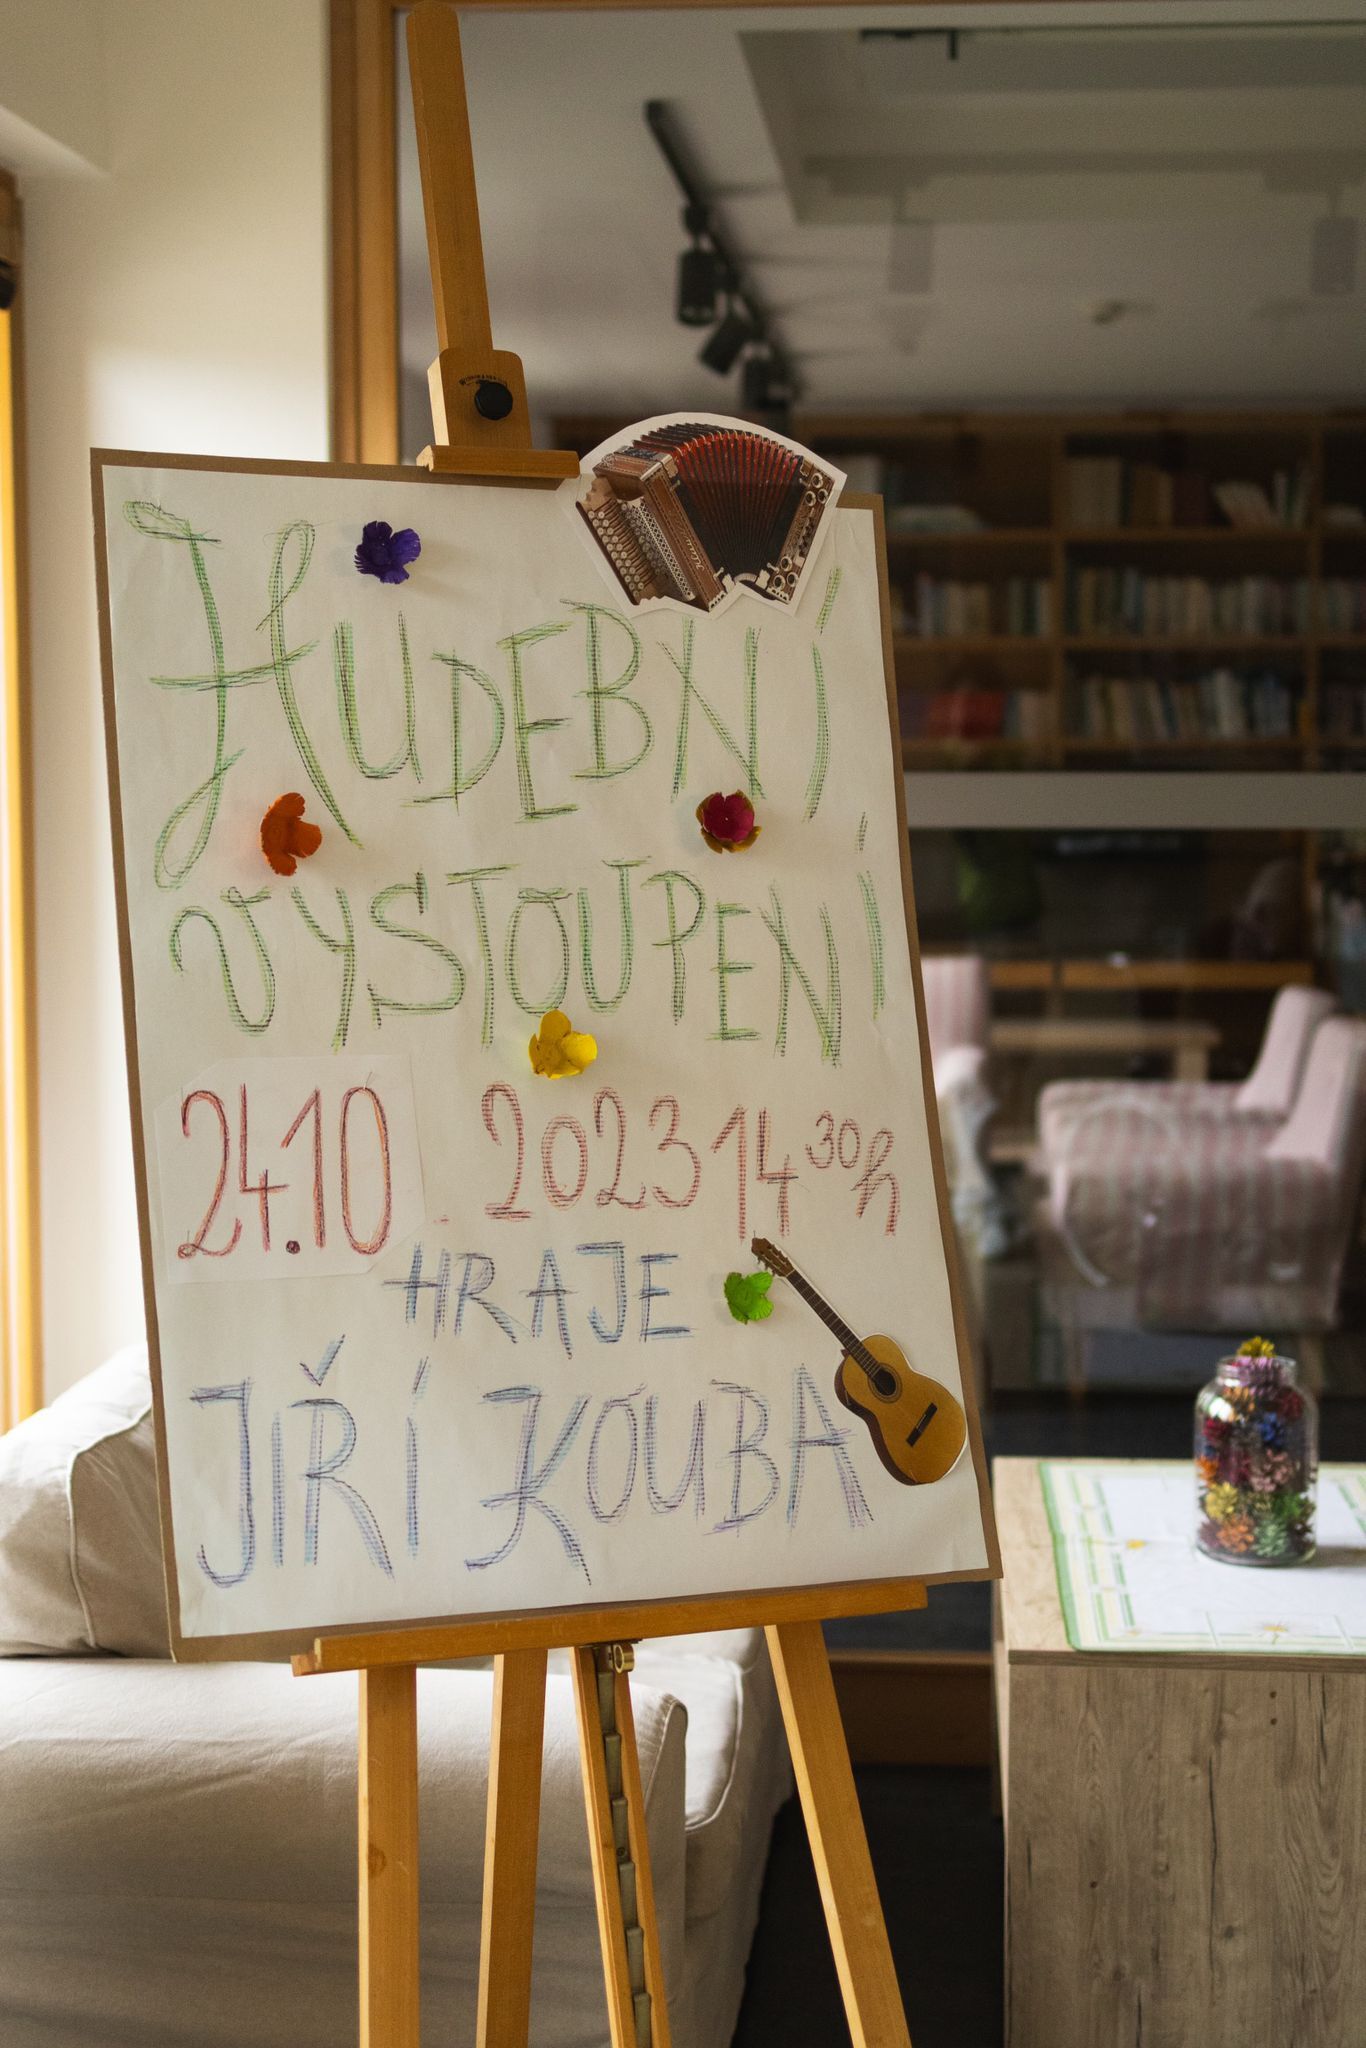 HUDEBNÍ
VYSTOUPENÍ
24.10. 2023 14 30 h
HRAJE
JIŘÍ KOUBA